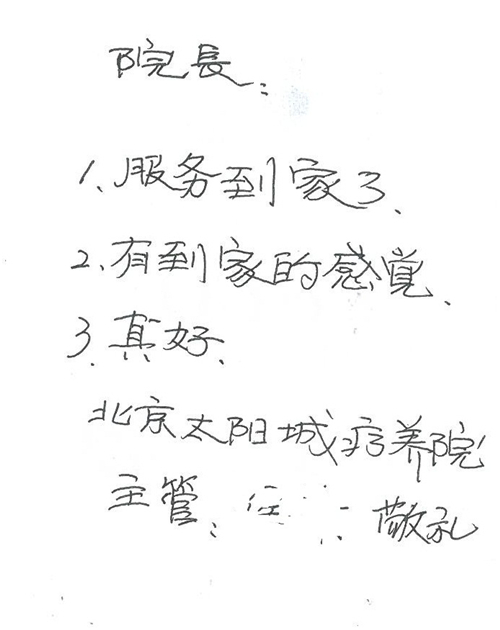 院長：
1、服务到家了、
2、有到家的感觉、
3、真好、
北京太阳城疗养院
主管：任 敬礼